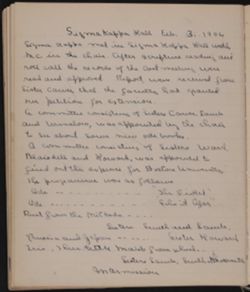 Sigma Kappa Hall Feb. 3, 1906
Sigma Kappa met in Sigma Kappa Hall with
in the chair. After scripture reading and
roll call the records of the last meeting were
read and approved. Report was received from
Sister Carver that the faculty had granted
our petition for extension.
A committee consisting of Sisters Carver, Lamb
and was appointed by the chair
to see about some new ode books.
A committee consisting of Sisters Ward,
and Howard, was appointed to
find out the expense for Boston University.
The programme was as follows:
Ode
Ode
Duet from the Mikado
Sisters Smith and Lamb.
Sister Howard
Trio. Three little Maids from school.
Sisters Lamb, Smith,
Intermission